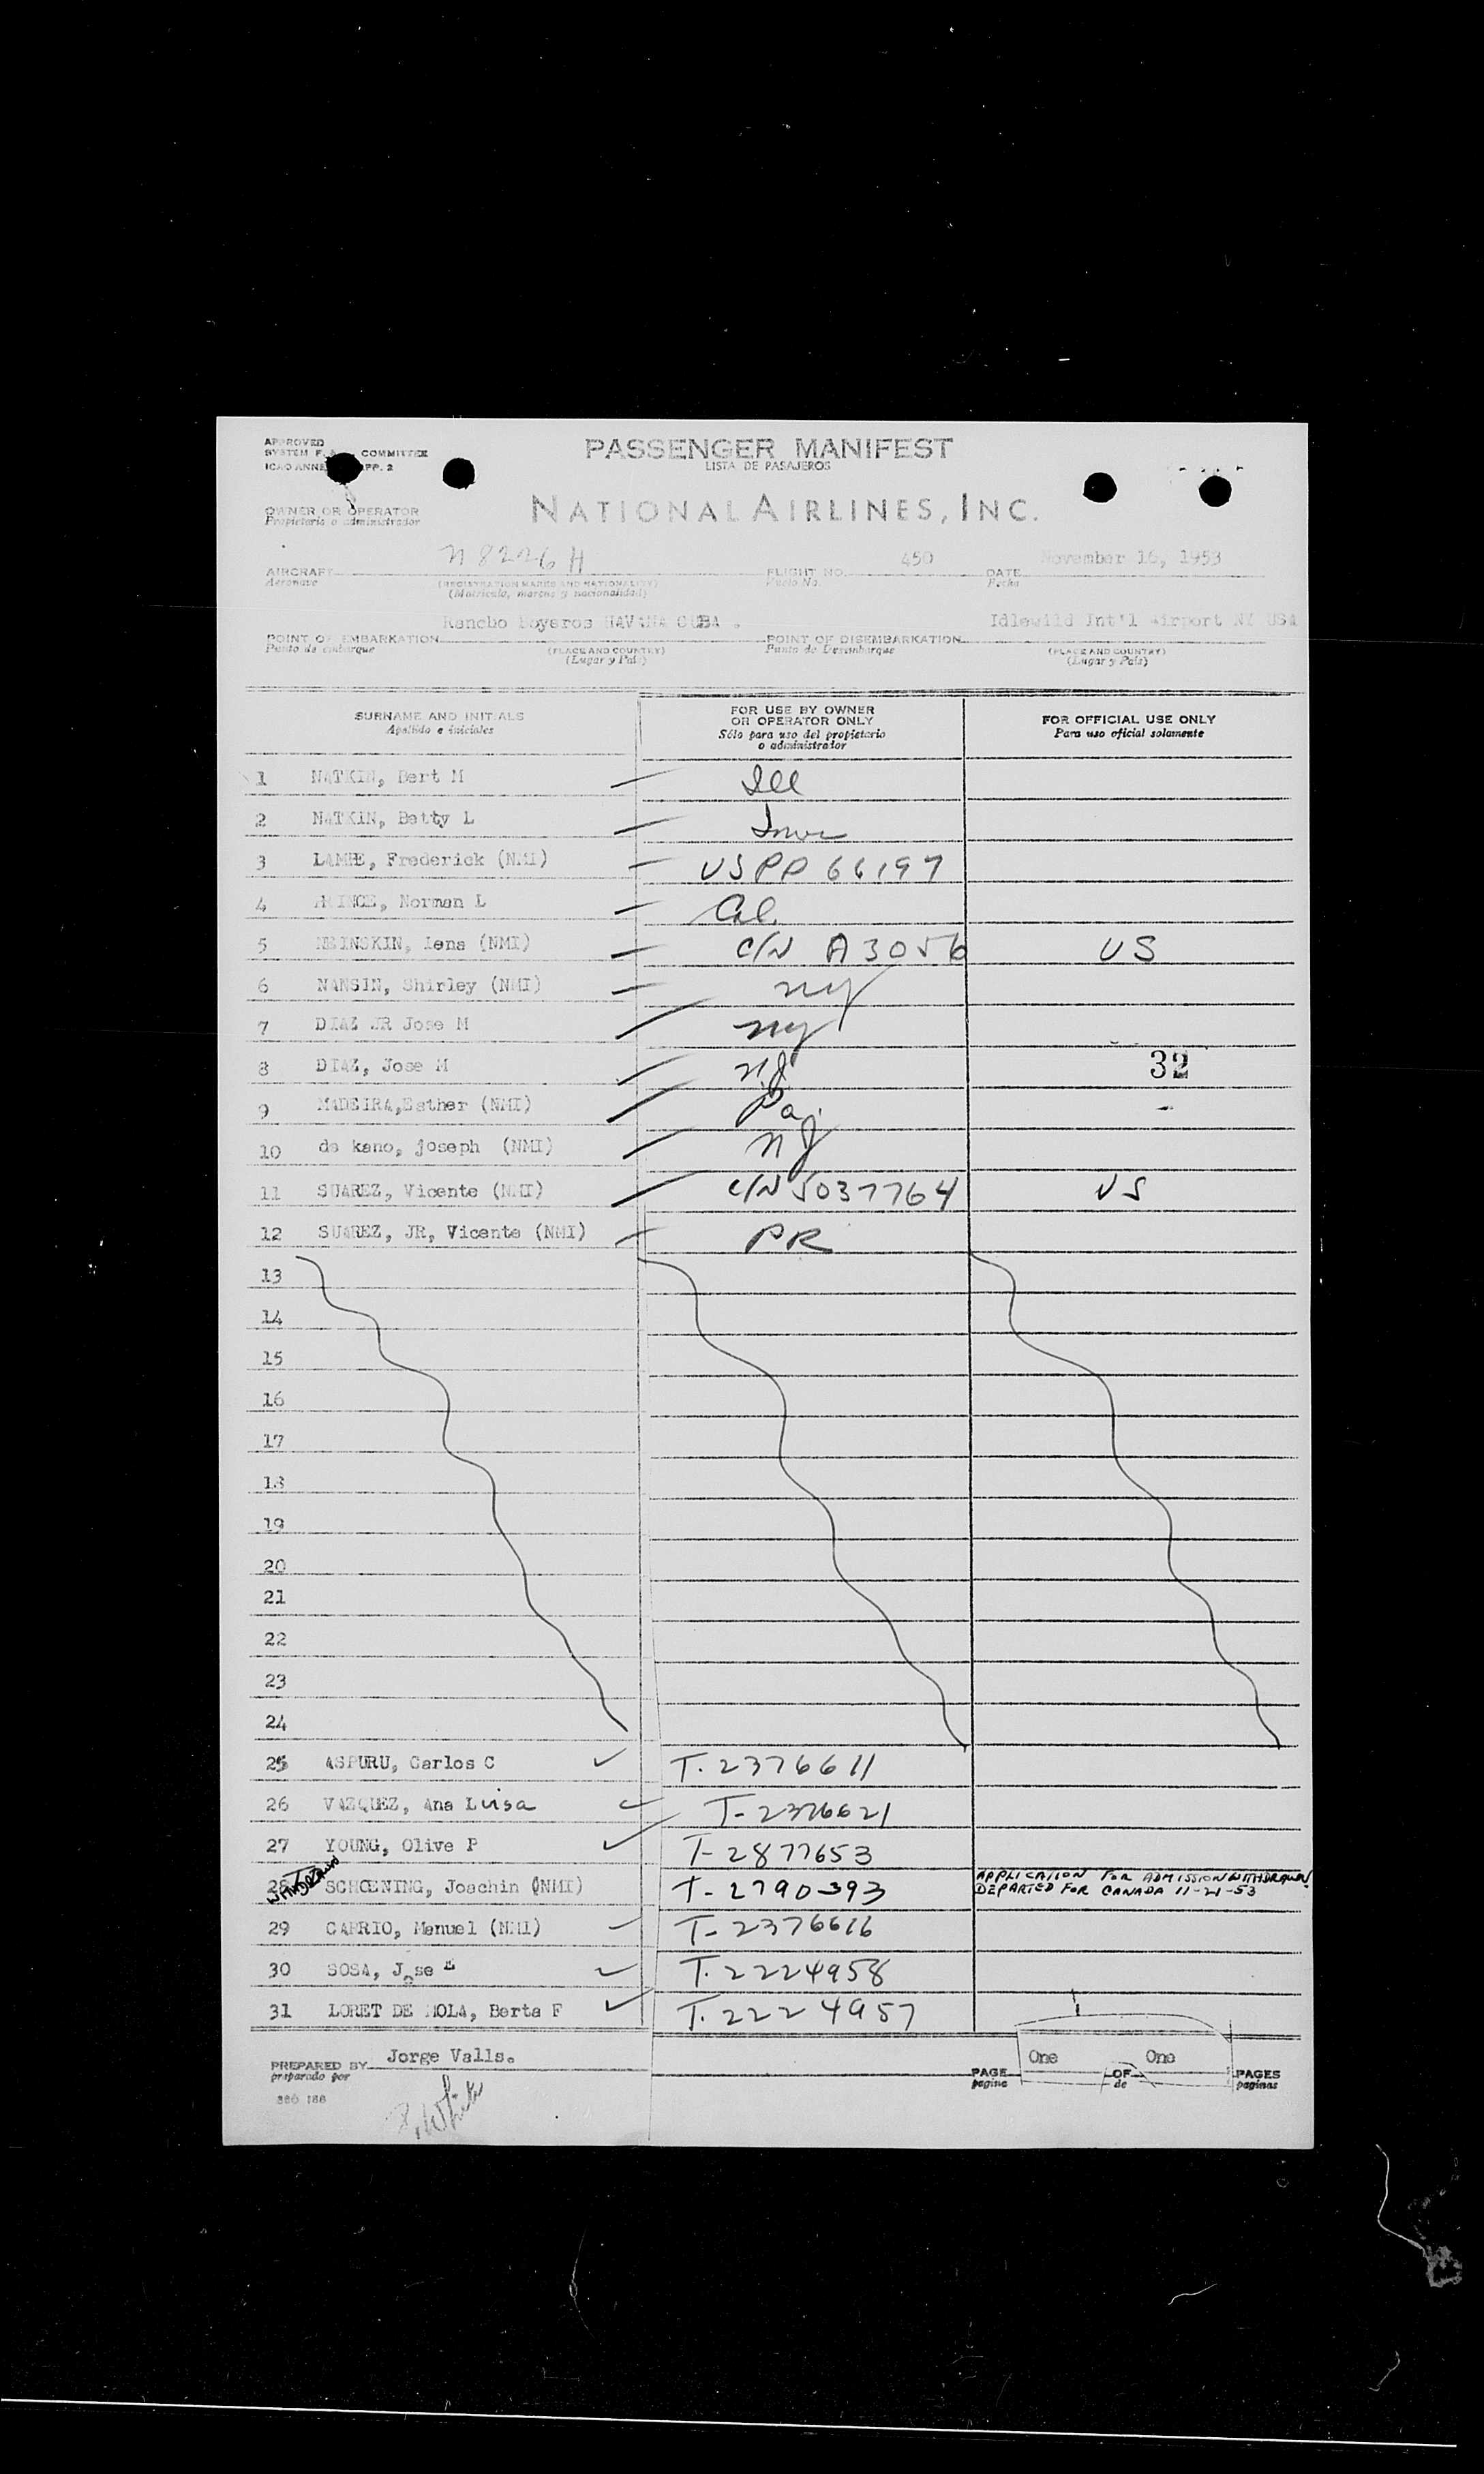 APPROVED
PASSENGER MANIFEST
SYSTEM F. COMMITTEE
LISTA DE PASAJEROS
ICAO ANNE PP. 2
OWNER OR OPERATOR
Propietario o administrador
NATIONAL AIRLINES, INC.
N8226H 450 November 16, 1953
AIRCRAFT FLIGHT NO. DATE
Aeronave (REGISTRATION MARKS AND NATIONALITY) Vuelo No. Fecha
(Matricula, marcas y nacionalidad)
Rancho Boyeros HAVANA CUBA . Idlewild Int'l Airport NY USA
POINT OF EMBARKATION POINT OF DISEMBARKATION
Punto de embarque (PLACE AND COUNTRY) Punto de Desembarque (PLACE AND COUNTRY)
(Lugar y Pais) (Lugar y Pais)
SURNAME AND INITIALS FOR USE BY OWNER OR OPERATOR ONLY FOR OFFICIAL USE ONLY
Apellido e iniciales Sólo para uso del propietario o administrador Para uso oficial solamente
1 NATKIN, Bert M Ill
2 NATKIN, Betty L
3 Frederick (NMI) USPP 66197
4 Norman L Cal
5 lena (NMI) C/N A3056 US
6 NANSIN, Shirley (NMI) NY
7 DIAZ JR Jose M NY
8 DIAZ, Jose M NJ 32
9 MADEIRA,Esther (NMI) Pa.
10 de kano, joseph (NMI) NJ
11 SUAREZ, Vicente (NMI) C/N 5037764 US
12 SUAREZ, JR, Vicente (NMI) PR
13
14
15
16
17
18
19
20
21
22
23
24
25 ASPURU, Carlos C T-2376611
26 VAZQUEZ, Ana Luisa T-2376621
27 YOUNG, Olive P T-2877653
WITHDRAWN
28 SCHOENING, Joachin (NMI) T-2790393 APPLICATION FOR ADMISSION WITHDRAWN
DEPARTED FOR CANADA 11-21-53
29 CARRIO, Manuel (NMI) T-2376616
30 SOSA, Jose T-2224958
31 LORET DE MOLA, Berta F T-2224957
PREPARED BY Jorge Valls. PAGE One OF One PAGES
preparado por pagina de paginas